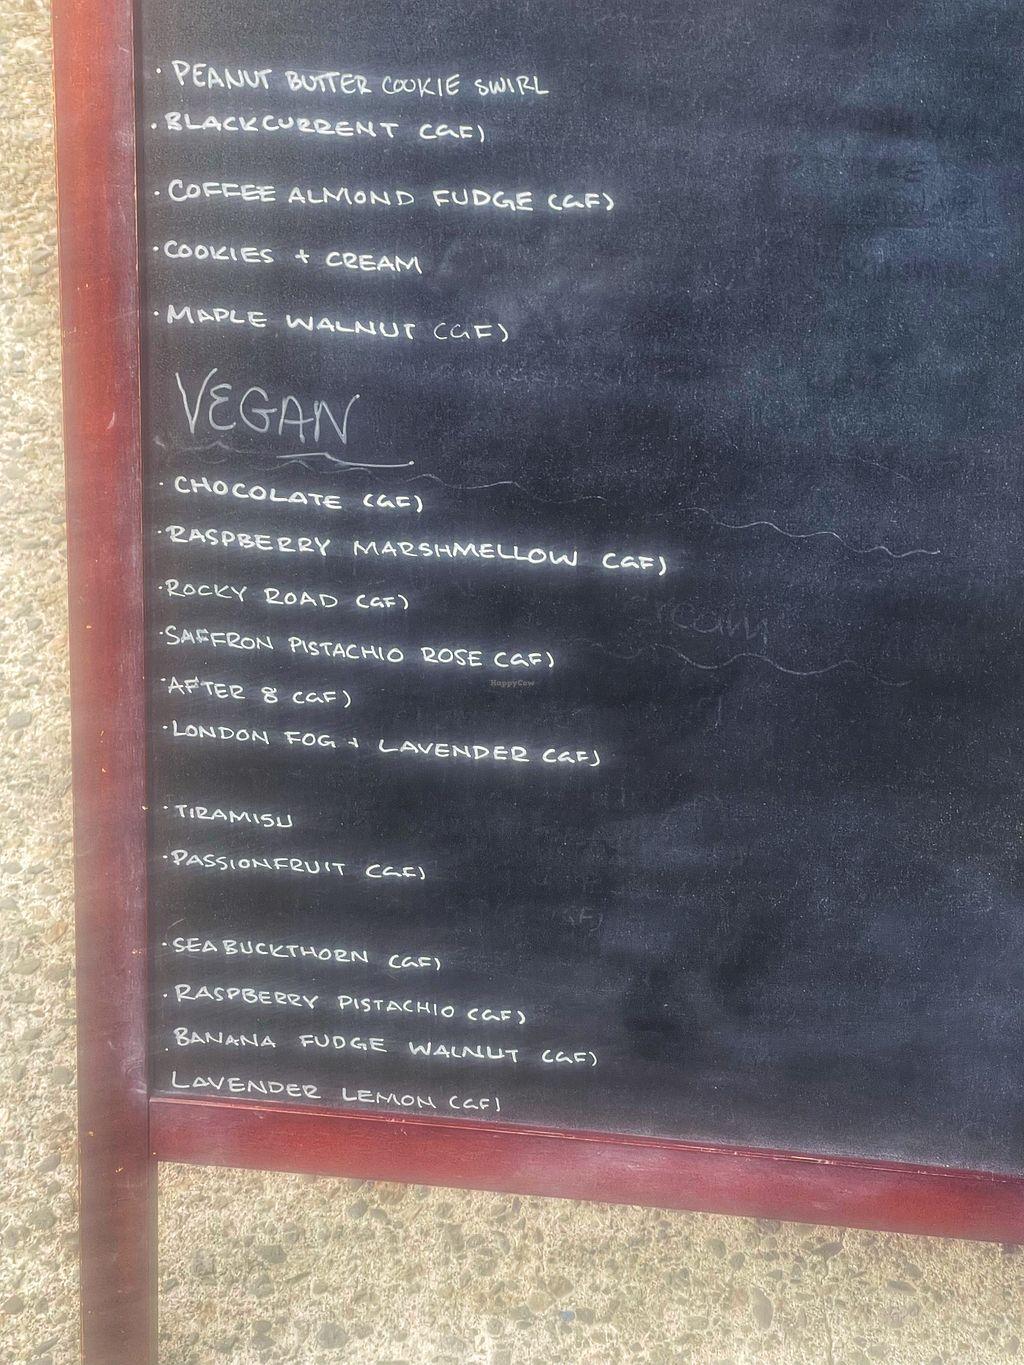 · PEANUT BUTTER COOKIE SWIRL
· BLACKCURRENT (GF)
· COFFEE ALMOND FUDGE (GF)
· COOKIES + CREAM
· MAPLE WALNUT (GF)
VEGAN
· CHOCOLATE (GF)
· RASPBERRY MARSHMELLOW (GF)
· ROCKY ROAD (GF)
· SAFFRON PISTACHIO ROSE (GF)
HappyCow
· AFTER 8 (GF)
· LONDON FOG + LAVENDER (GF)
· TIRAMISU
· PASSIONFRUIT (GF)
· SEABUCKTHORN (GF)
· RASPBERRY PISTACHIO (GF)
· BANANA FUDGE WALNUT (GF)
LAVENDER LEMON (GF)